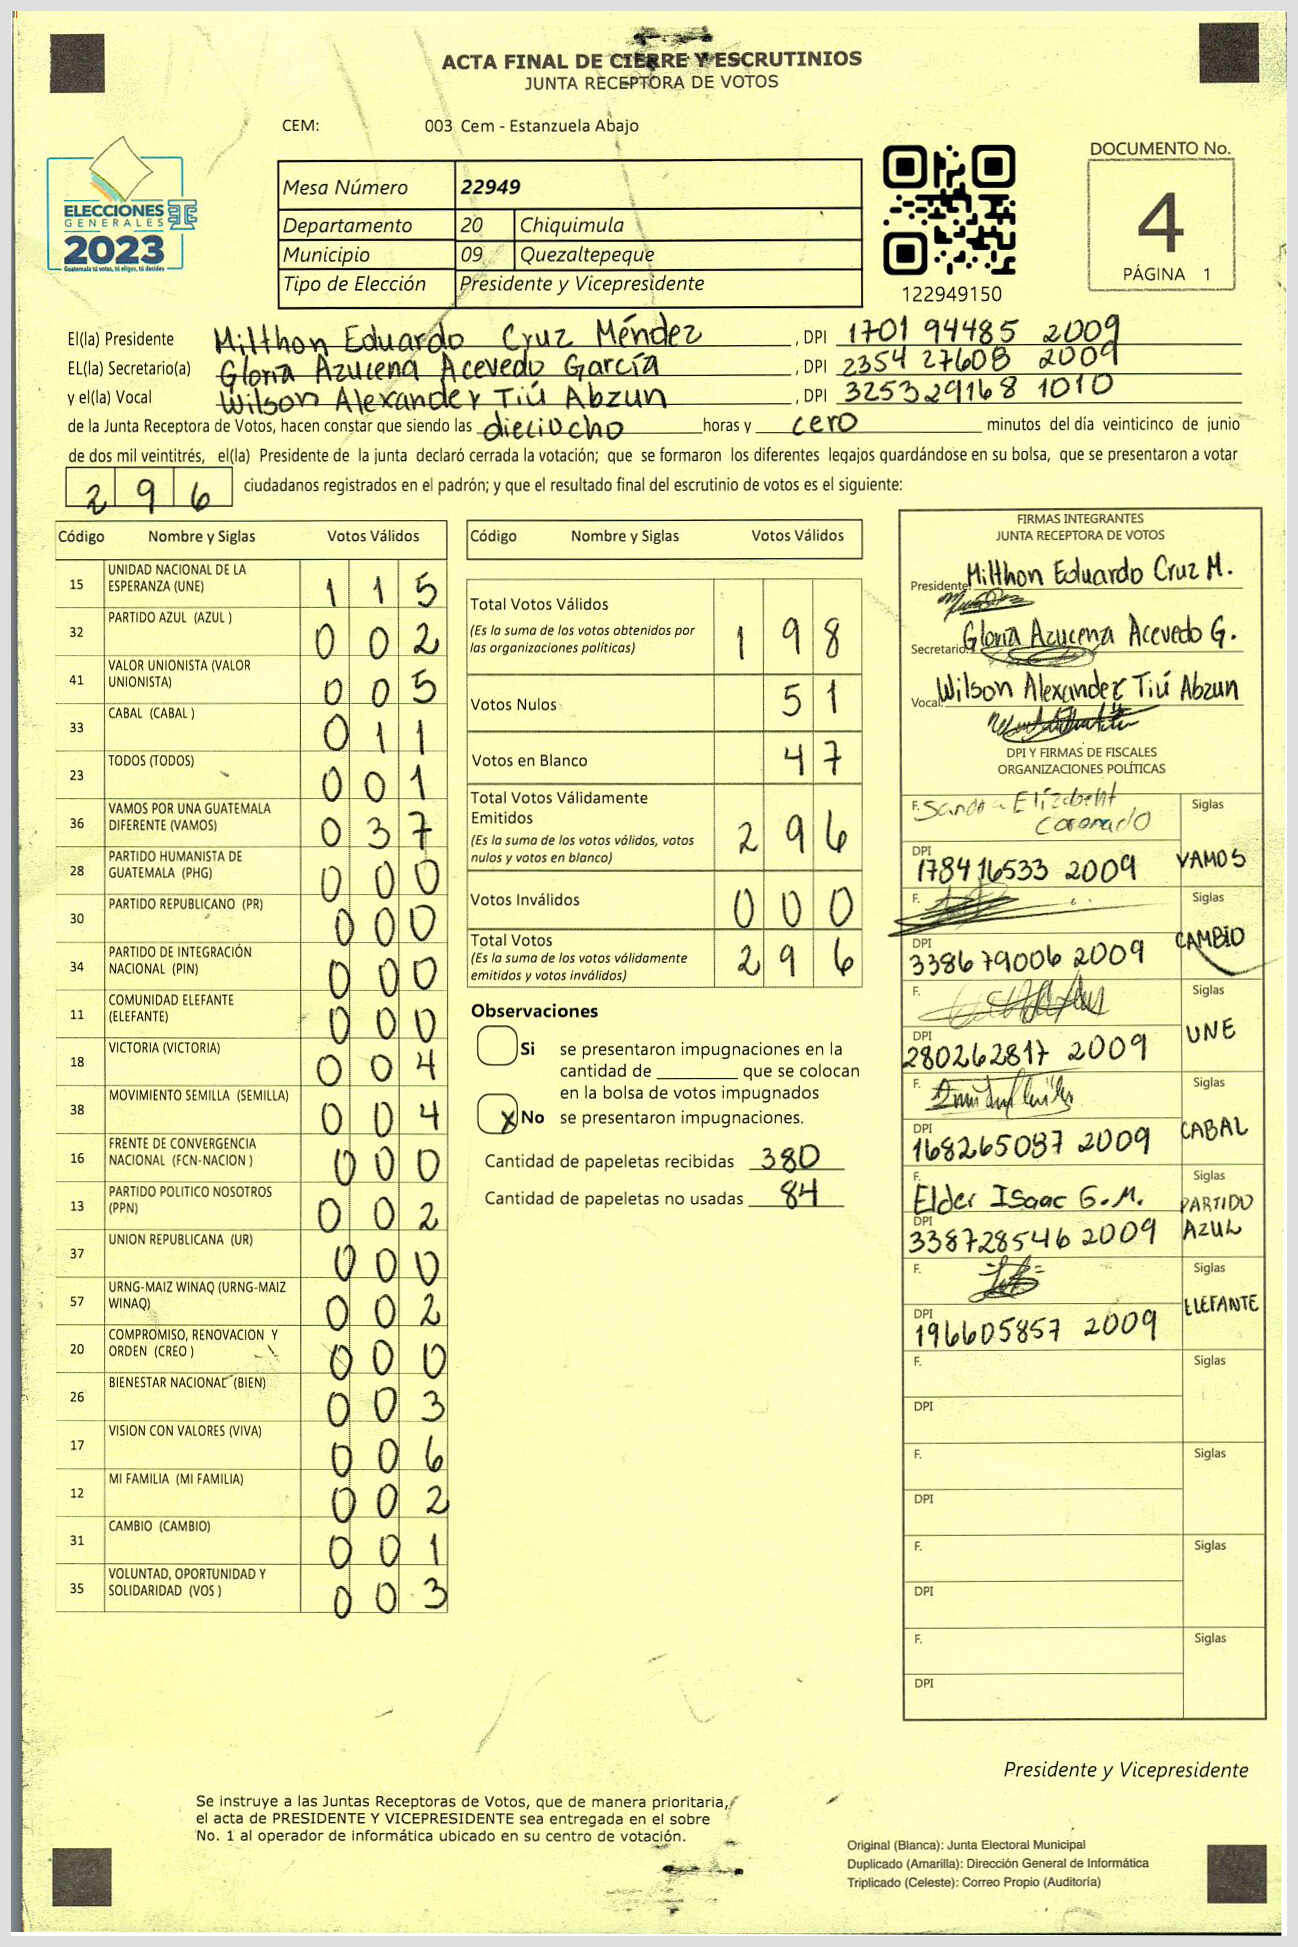 ACTA FINAL DE CIERRE Y ESCRUTINIOS
JUNTA RECEPTORA DE VOTOS
CEM: 003 Cem - Estanzuela Abajo
DOCUMENTO No.
4
PÁGINA 1
ELECCIONES
GENERALES
2023
Guatemala tú votas, tú eliges, tú decides
Mesa Número 22949
Departamento 20 Chiquimula
Municipio 09 Quezaltepeque
Tipo de Elección Presidente y Vicepresidente
122949150
El(la) Presidente Milthon Eduardo Cruz Méndez , DPI 1701 94485 2009
EL(la) Secretario(a) Gloria Azucena Acevedo García , DPI 2354 27608 2009
y el(la) Vocal Wilson Alexander Tiú Abzun , DPI 3253 29168 1010
de la Junta Receptora de Votos, hacen constar que siendo las dieciocho horas y cero minutos del día veinticinco de junio
de dos mil veintitrés, el(la) Presidente de la junta declaró cerrada la votación; que se formaron los diferentes legajos guardándose en su bolsa, que se presentaron a votar
296 ciudadanos registrados en el padrón; y que el resultado final del escrutinio de votos es el siguiente:
Código Nombre y Siglas Votos Válidos
15 UNIDAD NACIONAL DE LA
ESPERANZA (UNE) 1 1 5
32 PARTIDO AZUL (AZUL ) 0 0 2
41 VALOR UNIONISTA (VALOR
UNIONISTA) 0 0 5
33 CABAL (CABAL ) 0 1 1
23 TODOS (TODOS) 0 0 1
36 VAMOS POR UNA GUATEMALA
DIFERENTE (VAMOS) 0 3 7
28 PARTIDO HUMANISTA DE
GUATEMALA (PHG) 0 0 0
30 PARTIDO REPUBLICANO (PR) 0 0 0
34 PARTIDO DE INTEGRACIÓN
NACIONAL (PIN) 0 0 0
11 COMUNIDAD ELEFANTE
(ELEFANTE) 0 0 0
18 VICTORIA (VICTORIA) 0 0 4
38 MOVIMIENTO SEMILLA (SEMILLA) 0 0 4
16 FRENTE DE CONVERGENCIA
NACIONAL (FCN-NACION ) 0 0 0
13 PARTIDO POLITICO NOSOTROS
(PPN) 0 0 2
37 UNION REPUBLICANA (UR) 0 0 0
57 URNG-MAIZ WINAQ (URNG-MAIZ
WINAQ) 0 0 2
20 COMPROMISO, RENOVACION Y
ORDEN (CREO ) 0 0 0
26 BIENESTAR NACIONAL (BIEN) 0 0 3
17 VISION CON VALORES (VIVA) 0 0 6
12 MI FAMILIA (MI FAMILIA) 0 0 2
31 CAMBIO (CAMBIO) 0 0 1
35 VOLUNTAD, OPORTUNIDAD Y
SOLIDARIDAD (VOS ) 0 0 3
Código Nombre y Siglas Votos Válidos
Total Votos Válidos 1 9 8
(Es la suma de los votos obtenidos por
las organizaciones políticas)
Votos Nulos 5 1
Votos en Blanco 4 7
Total Votos Válidamente
Emitidos 2 9 6
(Es la suma de los votos válidos, votos
nulos y votos en blanco)
Votos Inválidos 0 0 0
Total Votos 2 9 6
(Es la suma de los votos válidamente
emitidos y votos inválidos)
Observaciones
Si se presentaron impugnaciones en la
cantidad de ________ que se colocan
en la bolsa de votos impugnados
X No se presentaron impugnaciones.
Cantidad de papeletas recibidas 380
Cantidad de papeletas no usadas 84
FIRMAS INTEGRANTES
JUNTA RECEPTORA DE VOTOS
Presidente: Milthon Eduardo Cruz M.
Secretario: Gloria Azucena Acevedo G.
Vocal: Wilson Alexander Tiú Abzun
DPI Y FIRMAS DE FISCALES
ORGANIZACIONES POLÍTICAS
F. Sandra Elizabeht Siglas
Coronado
DPI
178416533 2009 VAMOS
F. Siglas
DPI
338679006 2009 CAMBIO
F. Siglas
DPI
280262817 2009 UNE
F. Siglas
DPI
168265087 2009 CABAL
F. Siglas
Elder Isaac G.M. PARTIDO
DPI
338728546 2009 AZUL
F. Siglas
DPI
196605857 2009 ELEFANTE
F. Siglas
DPI
F. Siglas
DPI
F. Siglas
DPI
F. Siglas
DPI
Presidente y Vicepresidente
Se instruye a las Juntas Receptoras de Votos, que de manera prioritaria,
el acta de PRESIDENTE Y VICEPRESIDENTE sea entregada en el sobre
No. 1 al operador de informática ubicado en su centro de votación.
Original (Blanca): Junta Electoral Municipal
Duplicado (Amarilla): Dirección General de Informática
Triplicado (Celeste): Correo Propio (Auditoría)